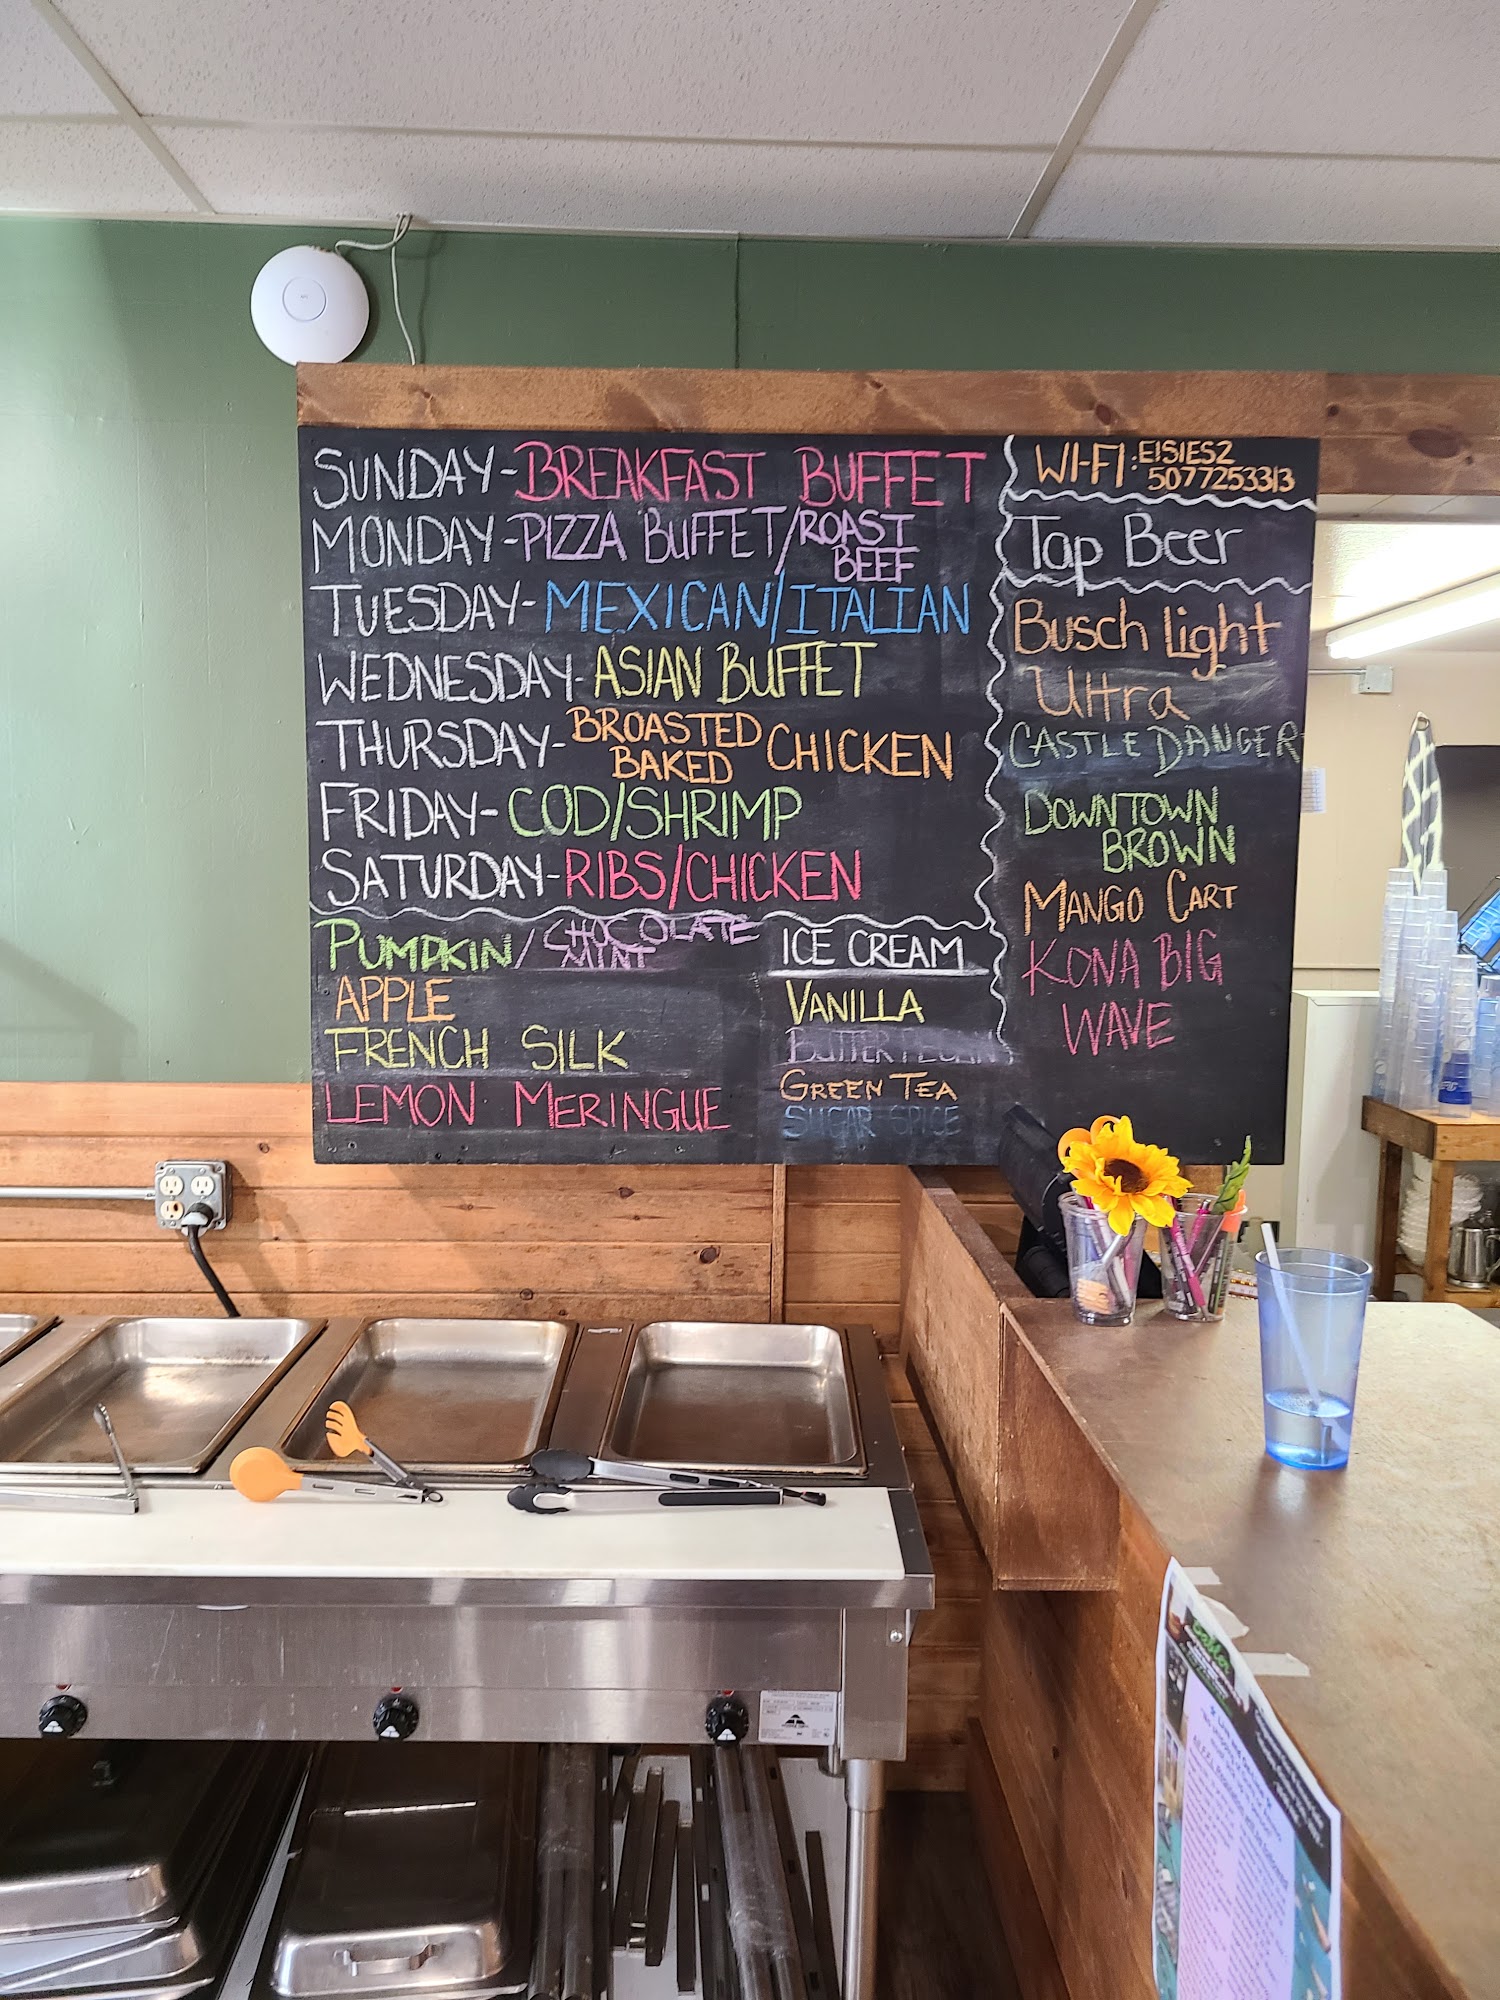 SUNDAY-BREAKFAST BUFFET
MONDAY-PIZZA BUFFET/ROAST
BEEF
TUESDAY-MEXICAN/ITALIAN
WEDNESDAY-ASIAN BUFFET
THURSDAY-BROASTED
BAKED CHICKEN
FRIDAY-COD/SHRIMP
SATURDAY-RIBS/CHICKEN
PUMPKIN/CHOCOLATE
MINT
APPLE
FRENCH SILK
LEMON MERINGUE
ICE CREAM
VANILLA
BUTTER PECAN
GREEN TEA
SUGAR SPICE
WI-FI: EISIES2
5077253313
Tap Beer
Busch Light
Ultra
CASTLE DANGER
DOWNTOWN
BROWN
MANGO CART
KONA BIG
WAVE